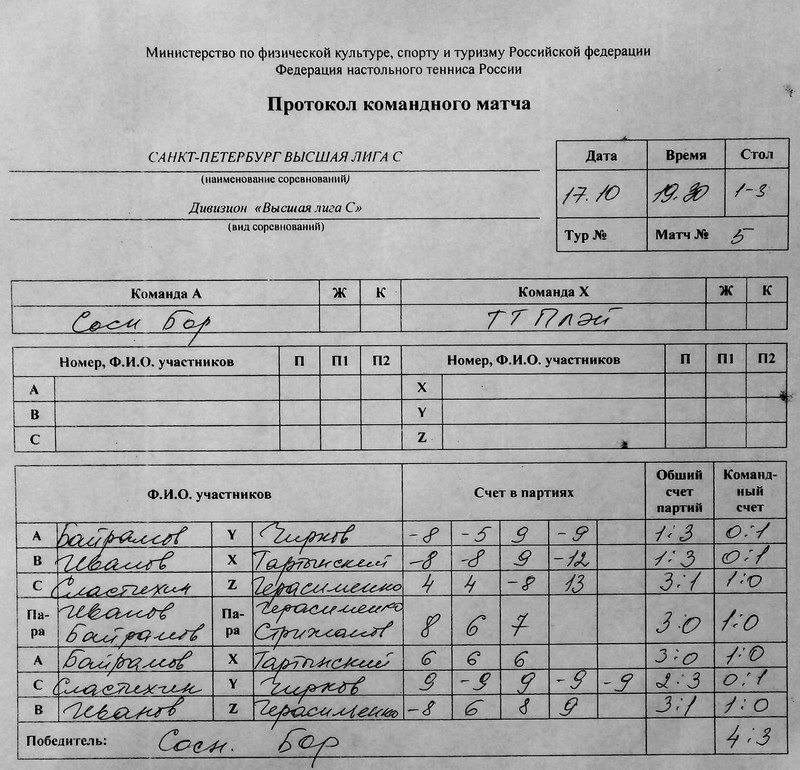 Министерство по физической культуре, спорту и туризму Российской федерации
Федерация настольного тенниса России
Протокол командного матча
САНКТ-ПЕТЕРБУРГ ВЫСШАЯ ЛИГА С
(наименование соревнований)
Дивизион «Высшая лига С»
(вид соревнований)
Дата Время Стол
17.10 19.30 1-3
Тур № Матч № 5
Команда А Ж К Команда Х Ж К
Сосн Бор ТТ Плэй
Номер, Ф.И.О. участников П П1 П2 Номер, Ф.И.О. участников П П1 П2
А Х
В Y
С Z
Ф.И.О. участников Счет в партиях Обший счет партий Командный счет
А Байрамов Y Чирков -8 -5 9 -9 1:3 0:1
В Иванов Х Тартынский -8 -8 9 -12 1:3 0:1
С Сластихин Z Герасименко 4 4 -8 13 3:1 1:0
Пара Иванов Байрамов Пара Герасименко Стрижанов 8 6 7 3:0 1:0
А Байрамов Х Тартынский 6 6 6 3:0 1:0
С Сластихин Y Чирков 9 -9 9 -9 -9 2:3 0:1
В Иванов Z Герасименко -8 6 8 9 3:1 1:0
Победитель: Сосн. Бор 4:3